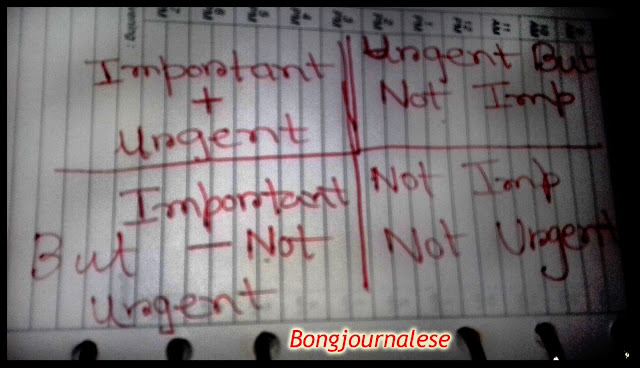 Important
+
Urgent
Urgent But
Not Imp
Important
But — Not
Urgent
Not Imp
Not Urgent
Bongjournalese